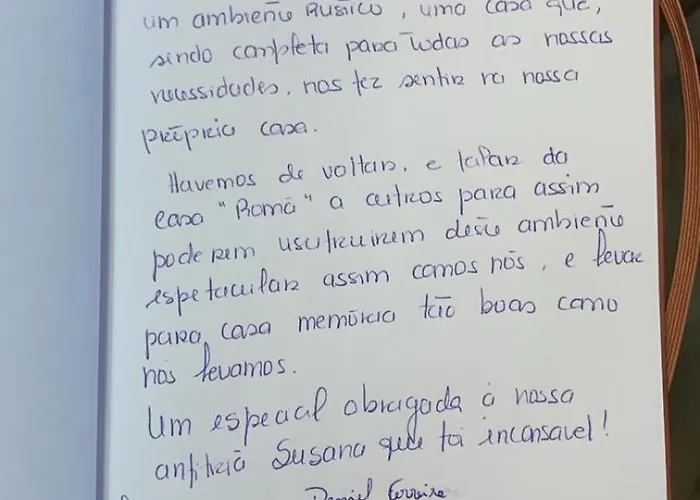 um ambiente Rústico, uma casa que,
sendo completa para todas as nossas
necessidades, nos fez sentir na nossa
própria casa.
Havemos de voltar, e falar da
casa "Romã" a outros para assim
poderem usufruirem deste ambiente
espetacular assim comos nós, e levar
para casa memória tão boas como
nós levamos.
Um especial obrigada à nossa
anfitriã Susana que foi incansavel!
Daniel Ferreira